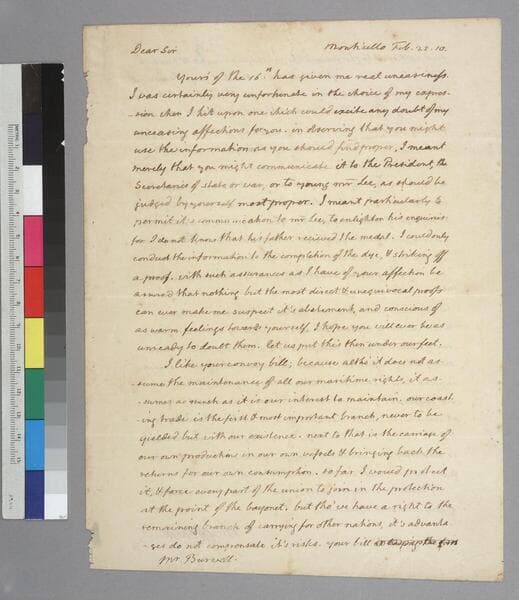 Dear Sir Monticello Feb. 25. 10.
Yours of the 16th has given me real uneasiness.
I was certainly very unfortunate in the choice of my expres-
-sion when I hit upon one which could excite any doubt of my
unceasing affections for you. in observing that you might
use the information as you should find proper, I meant
merely that you might communicate it to the President, the
Secretaries of state or war, or to young mr Lee, as should be
judged by yourself most proper. I meant particularly to
permit it's communication to mr Lee, to enlighten his enquiries
for I do not know that his father recieved the medal. I could only
conduct the information to the completion of the dye, & striking off
a proof. with such assurances as I have of your affection be
assured that nothing but the most direct & unequivocal proofs
can ever make me suspect it's abatement, and conscious of
as warm feelings towards yourself, I hope you will ever be as
unready to doubt them. let us put this then under our feet.
I like your convoy bill; because altho' it does not as-
-sume the maintenance of all our maritime rights, it as-
-sumes as much as it is our interest to maintain. our coast-
-ing trade is the first & most important branch, never to be
yielded but with our existence. next to that is the carriage of
our own productions in our own vessels & bringing back the
returns for our own consumption. so far I would protect
it, & force every part of the union to join in the protection
at the point of the bayonet. but tho' we have a right to the
remaining branch of carrying for other nations, it's advanta-
-ges do not compensate it's risks. your bill
Mr. Burwell.